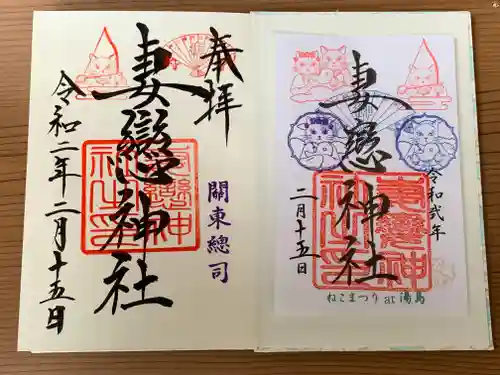 奉拝
關東總司
妻戀神社
妻戀神
社之印
令和二年二月十五日
令和弐年
妻恋神社
妻戀神
社之印
二月十五日
ねこまつり at 湯島